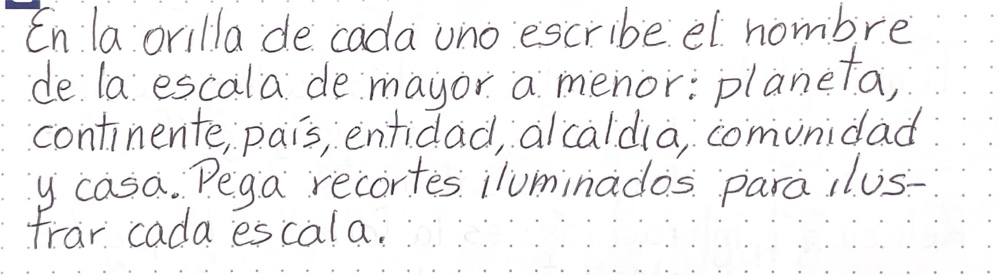 En la orilla de cada uno escribe el nombre
de la escala de mayor a menor: planeta,
continente, país, entidad, alcaldia, comunidad
y casa. Pega recortes iluminados para ilus-
trar cada escala.